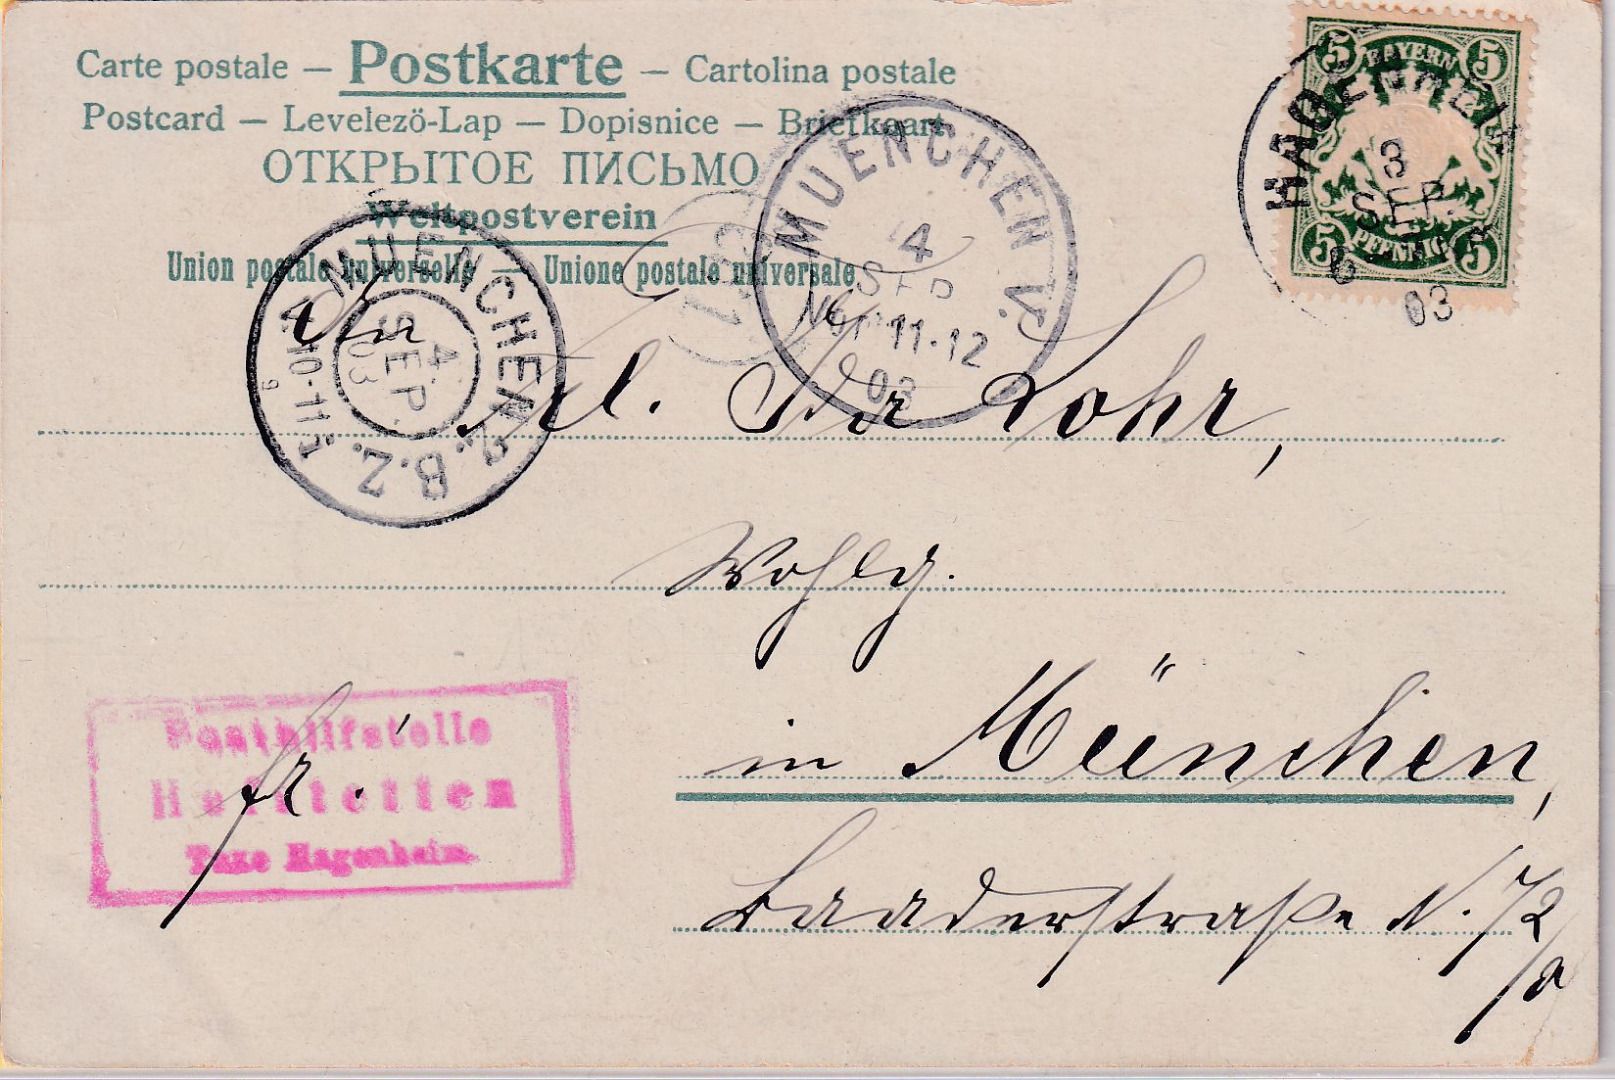 Carte postale – Postkarte – Cartolina postale
Postcard – Levelezö-Lap – Dopisnice – Briefkaart
ОТКРЫТОЕ ПИСЬМО
Weltpostverein
Union postale universelle – Unione postale universale
BAYERN
5 5
5 PFENNIG 5
HAGENHEIM
3
SEP.
6
03
MUENCHEN V.
4
SEP
Vor 11-12
03
MUENCHEN 2. B.Z.
4.
SEP.
03
10-11
An
Frl. Ida Lohr,
Wohlg.
in München,
Baaderstraße N.
fr.
Posthilfstelle
Hofstetten
Taxe Hagenheim.